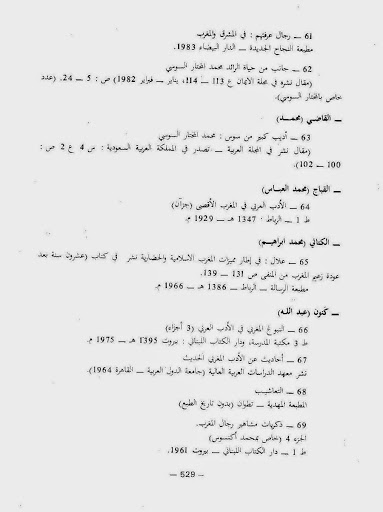 61 — رجال عرفتهم : في المشرق والمغرب
مطبعة النجاح الجديدة — الدار البيضاء 1983.
62 — جانب من حياة الرائد محمد المختار السوسي
(مقال نشره في مجلة الايمان ع 113 — 114، يناير — فبراير 1982) ص : 5 — 24. (عدد
خاص بالمختار السوسي).
— القاضي (محمد)
63 — أديب كبير من سوس : محمد المختار السوسي
(مقال نشر في المجلة العربية — تصدر في المملكة العربية السعودية : س 4 ع 2 ص :
100 — 102).
— القباج (محمد العباس)
64 — الأدب العربي في المغرب الأقصى (جزآن)
ط 1 — الرباط · 1347 هـ — 1929 م.
— الكتاني (محمد ابراهيم)
65 — علال : في إطار مميزات المغرب الاسلامية والحضارية نشر في كتاب (عشرون سنة بعد
عودة زعيم المغرب من المنفى ص 131 — 139.
مطبعة الرسالة — الرباط — 1386 هـ — 1966 م.
— كنون (عبد الله)
66 — النبوغ المغربي في الأدب العربي (3 أجزاء)
ط 3 مكتبة المدرسة، ودار الكتاب اللبناني : بيروت 1395 هـ — 1975 م.
67 — أحاديث عن الأدب المغربي الحديث
نشر معهد الدراسات العربية العالية (جامعة الدول العربية — القاهرة 1964).
68 — التعاشيب
المطبعة المهدية — تطوان (بدون تاريخ الطبع)
69 — ذكريات مشاهير رجال المغرب.
الجزء 4 (خاص بمحمد أكنسوس)
ط 1 — دار الكتاب اللبناني — بيروت 1961.
— 529 —